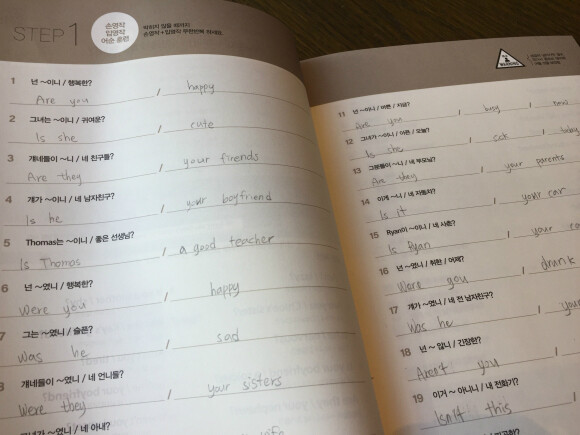 STEP 1
손영작
입영작
어순 훈련
손영작+입영작 무한반복 하세요.
1 넌 ~이니 / 행복한?
Are you / happy
2 그녀는 ~이니 / 귀여운?
Is she / cute
3 걔네들이 ~니 / 네 친구들?
Are they / your firends
4 걔가 ~이니 / 네 남자친구?
Is he / your boyfriend
5 Thomas는 ~이니 / 좋은 선생님?
Is Thomas / a good teacher
6 넌 ~였니 / 행복한?
Were you / happy
7 그는 ~였니 / 슬픈?
Was he / sad
8 걔네들이 ~였니 / 네 언니들?
Were they / your sisters
~였니 / 네 아내?
11 넌 ~이니 / 바쁜 / 지금?
Are you / busy / now
12 그녀가 ~이니 / 아픈 / 오늘?
Is she /
13 그분들이 ~니 / 네 부모님?
Are they / your parents
14 이게 ~니 / 네 자동차?
Is it / your car
15 Ryan이 ~이니 / 네 사촌?
Is Ryan / your
16 넌 ~였니 / 취한 / 어제?
Were you / drunk
17 걔가 ~였니 / 네 전 남자친구?
Was he /
18 넌 ~ 않니 / 긴장한?
Aren't you
19 이거 ~ 아니니 / 네 전화기?
Isn't this